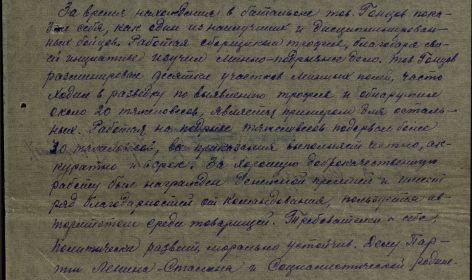 За время нахождения в батальоне тов. Гонцов пока-
зал себя, как один из наилучших и дисциплинирован-
ных бойцов. Работая сборщиком трофеев, благодаря сво-
ей инициативе изучил минно-подрывное дело. тов Гонцов
разминировал десятки участков минных полей, часто
ходил в разведку по выявлению трофея и обнаружил
около 20 тяжеловесов, является примером для осталь-
ных. Работая на подрыве тяжеловесов подорвал более
20 приказания выполняет четко, ак-
куратно и в срок. За хорошую доброкачественную
работу был награжден денежной премией и имеет
ряд благодарностей от командования, пользуется ав-
торитетом среди товарищей. Требователен к себе,
политически развит, морально устойчив. Делу Пар-
тии Ленина-Сталина и Социалистической Родине